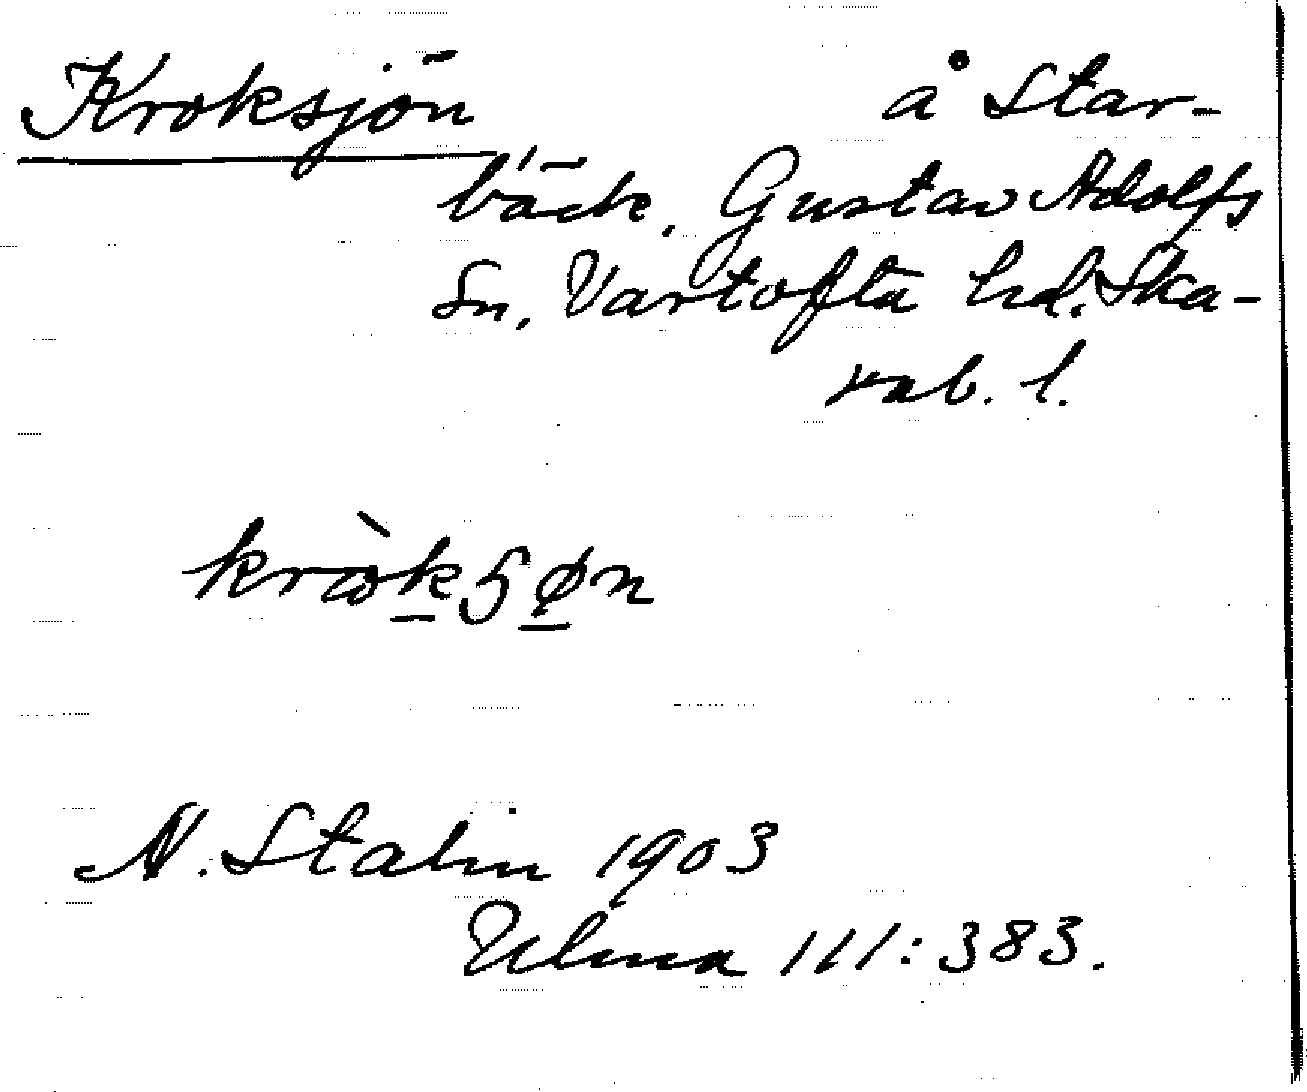 Kroksjön å Star-
bäck, Gustav Adolfs
sn, Vartofta hd. Ska-
rab. l.
N. Stalin 1903
Ulma 111:383.